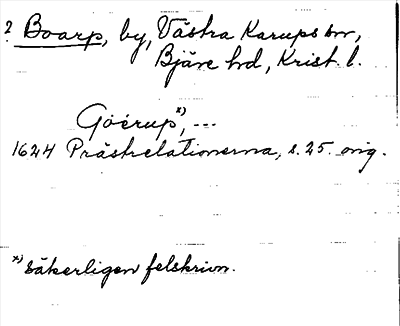 ? Boarp, by, Västra Karups sn,
Bjäre hd, Krist. l.
Göérup,*) ...
1624 Prästrelationerna, s. 25. orig.
*) Säkerligen felskrivn.